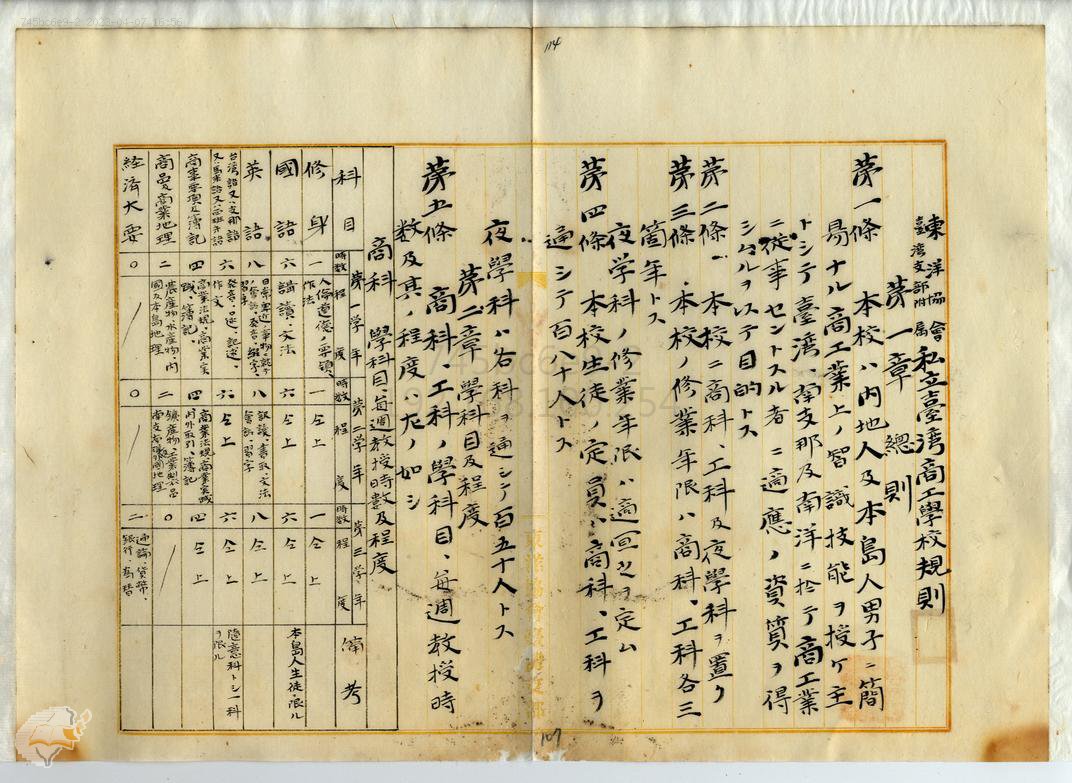 745bc6e9-2 2023-04-07 16:56
114
東洋協會
臺灣支部附属
私立臺湾商工學校規則
第一章 總則
第一條 本校ハ内地人及本島人男子ニ簡
易ナル商工業上ノ智識技能ヲ授ケ主
トシテ臺湾、南支那及南洋ニ於テ商工業
ニ従事セントスル者ニ適應ノ資質ヲ得
シムルヲ以テ目的トス
第二條 本校ニ商科、工科及夜學科ヲ置ク
第三條 本校ノ修業年限ハ商科、工科各三
箇年トス
夜学科ノ修業年限ハ適宜之ヲ定ム
第四條 本校生徒ノ定員ハ商科、工科ヲ
通シテ百八十人トス
夜學科ハ各科ヲ通シテ百五十人トス
第二章 學科目及程度
第五條 商科、工科ノ學科目、每週教授時
数及其ノ程度ハ左ノ如シ
商科 學科目、每週教授時數及程度
科目 時数 第一学年 程度 時数 第二学年 程度 時数 第三学年 程度 備考
修身 一 人倫道徳ノ要領、作法 一 仝上 一 仝上
國語 六 講讀、文法 六 仝上 六 仝上 本島人生徒ニ限ル
英語 八 八 八 仝上
台湾語又ハ支那語又ハ馬来語 六 發音、口述、記述、作文 六 仝上 六 仝上 随意科トシ一科ヲ限ル
商事要項及簿記 四 商業法規、商業実践、簿記 四 商業法規、商業実践、内外取引、簿記 四 仝上
商品商業地理 二 農産物、水産物、内國及本島地理 二 〇
経済大要 〇 〇 二 通論、貨幣、銀行、為替
107